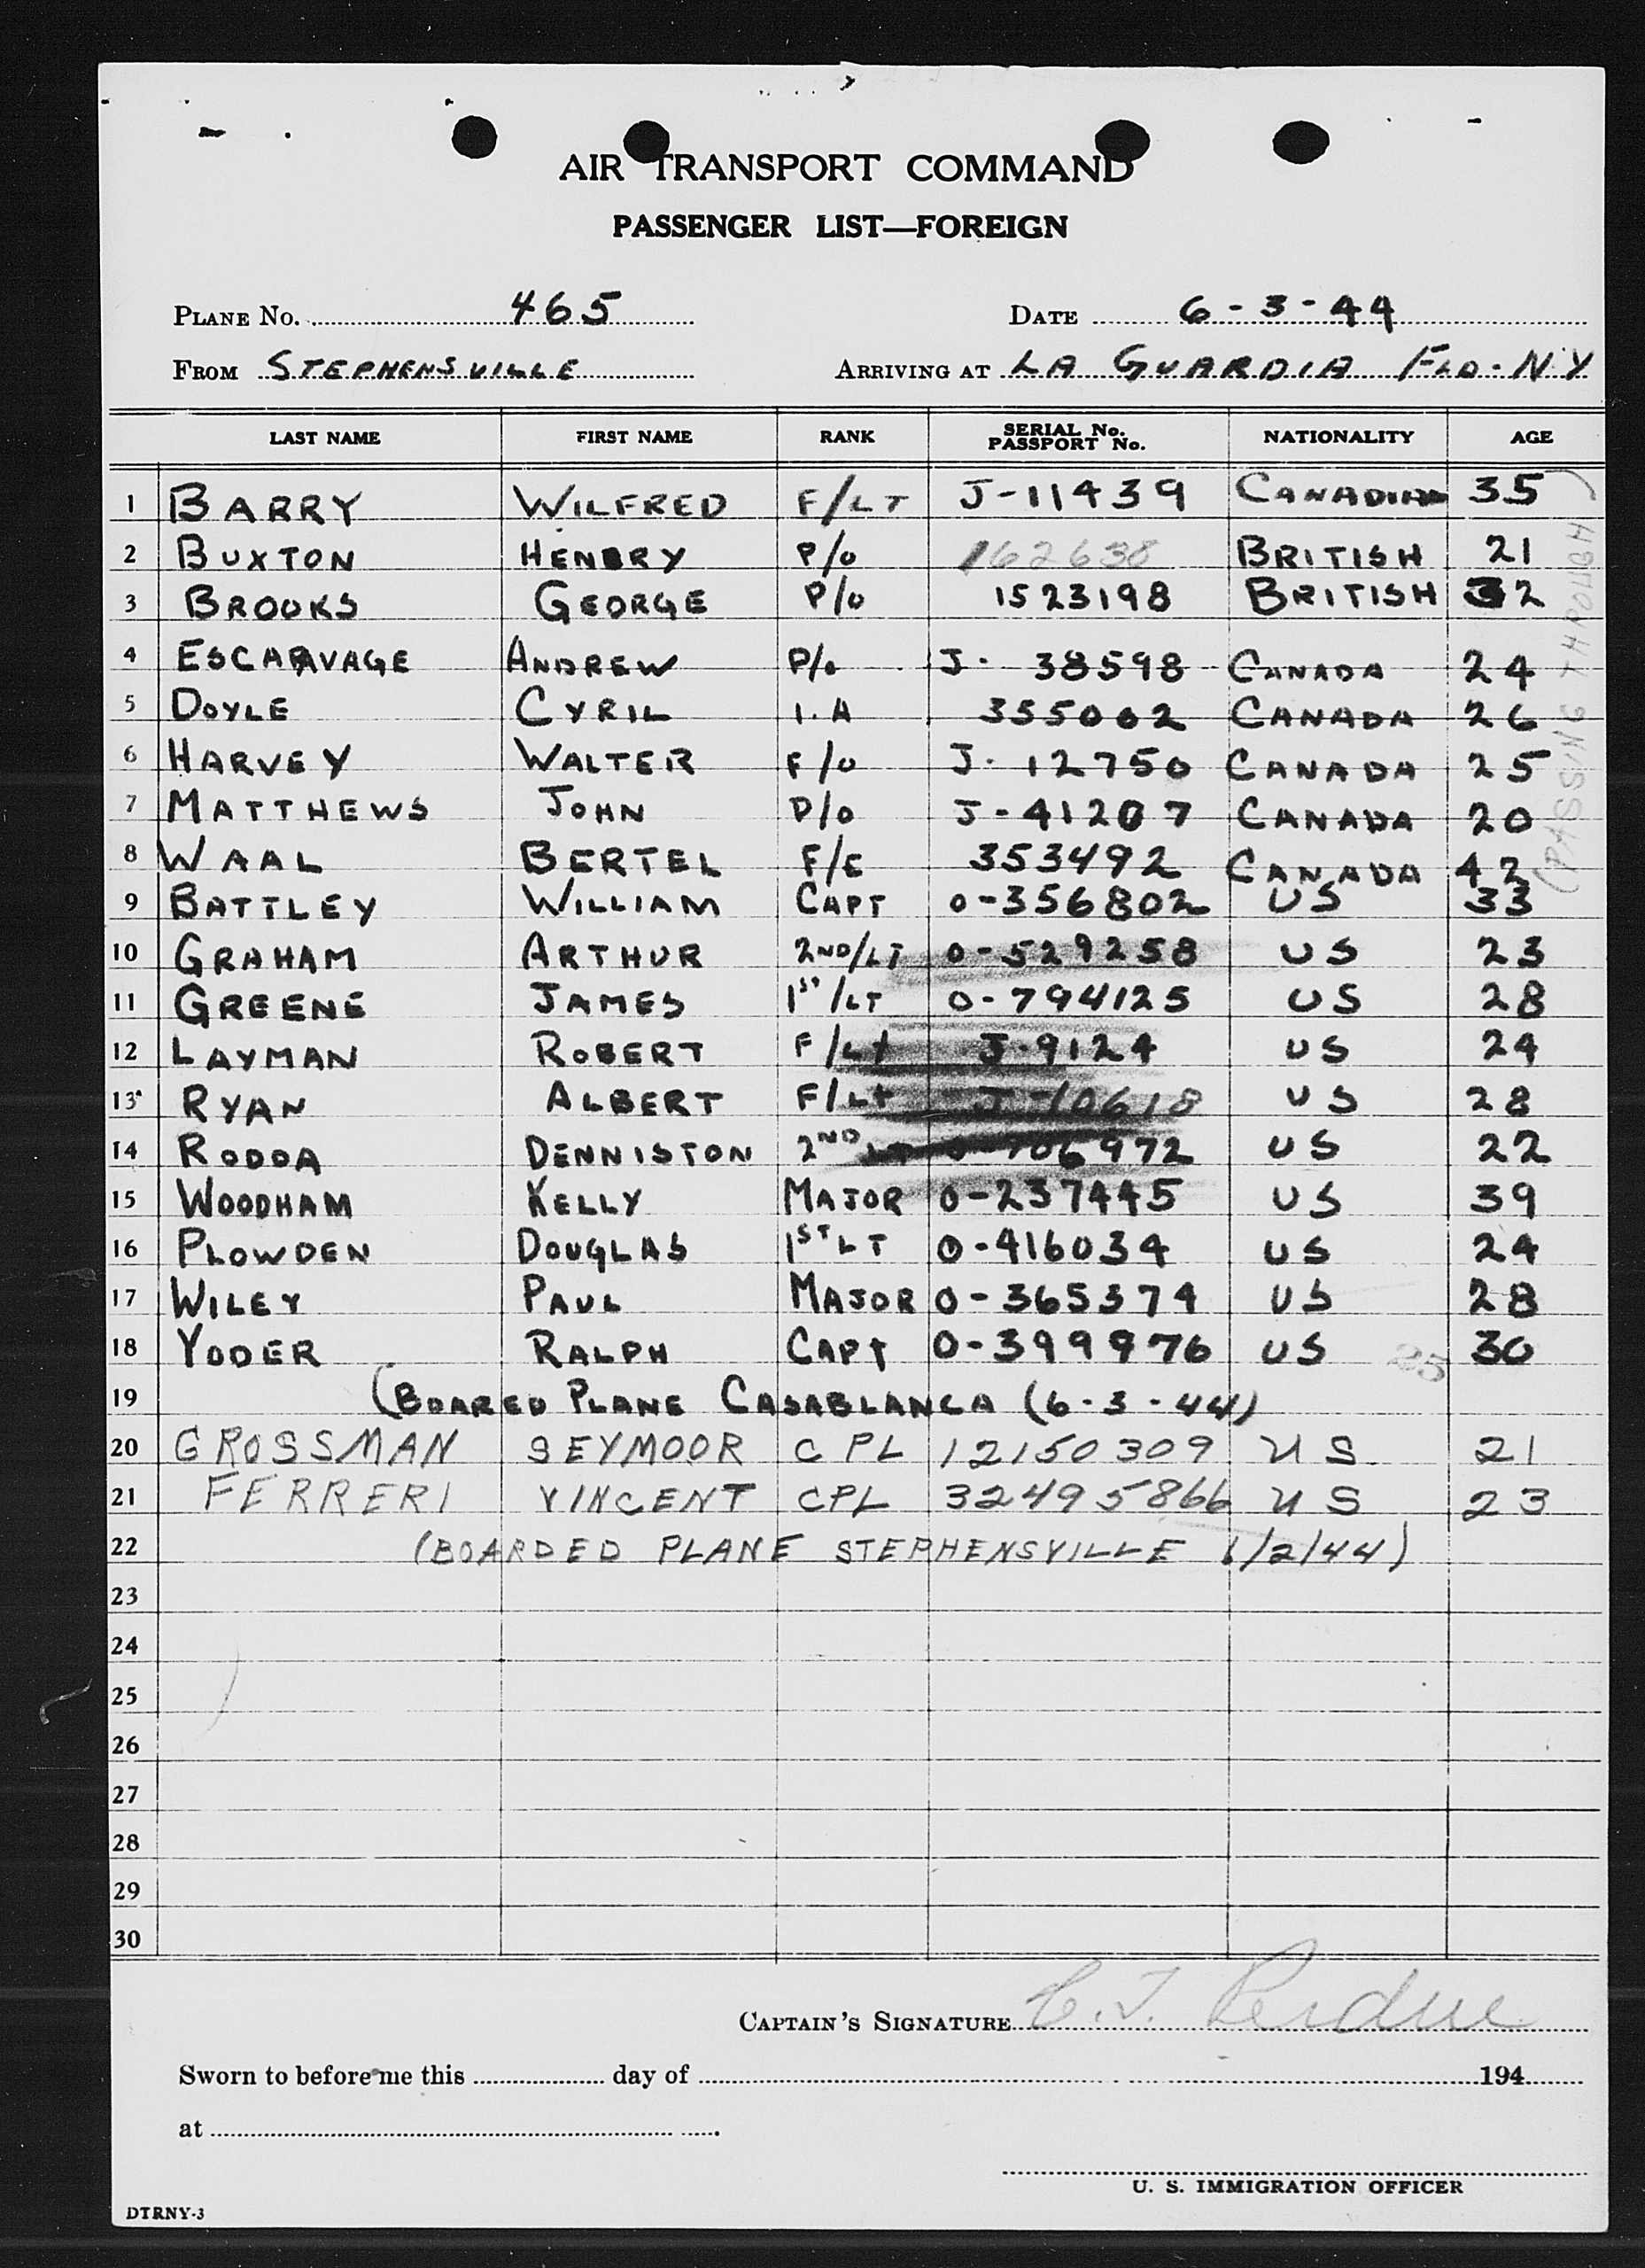 AIR TRANSPORT COMMAND
PASSENGER LIST—FOREIGN
PLANE No. 465 DATE 6-3-44
FROM STEPHENSVILLE ARRIVING AT LA GUARDIA FLD. NY
LAST NAME FIRST NAME RANK SERIAL No. PASSPORT No. NATIONALITY AGE
1 BARRY WILFRED F/LT J-11439 CANADIAN 35
2 BUXTON HENRY P/O 162638 BRITISH 21
3 BROOKS GEORGE P/O 1523198 BRITISH 32
4 ESCARAVAGE ANDREW P/O J- 38598 CANADA 24
5 DOYLE CYRIL 1.A 355002 CANADA 26
6 HARVEY WALTER F/O J- 12750 CANADA 25
7 MATTHEWS JOHN P/O J-41207 CANADA 20
8 WAAL BERTEL F/E 353492 CANADA 42
(PASSING THROUGH)
9 BATTLEY WILLIAM CAPT O-356802 US 33
10 GRAHAM ARTHUR 2ND/LT O-529258 US 23
11 GREENE JAMES 1ST/LT O-794125 US 28
12 LAYMAN ROBERT F/Lt J-9124 US 24
13 RYAN ALBERT F/Lt J-10618 US 28
14 RODDA DENNISTON 2ND LT O-706972 US 22
15 WOODHAM KELLY MAJOR O-237445 US 39
16 PLOWDEN DOUGLAS 1ST LT O-416034 US 24
17 WILEY PAUL MAJOR O-365374 US 28
18 YODER RALPH CAPT O-399976 US 25 30
19 (BOARED PLANE CASABLANCA (6-3-44)
20 GROSSMAN SEYMOOR CPL 12150309 US 21
21 FERRERI VINCENT CPL 32495866 US 23
22 (BOARDED PLANE STEPHENSVILLE 6/2/44)
23
24
25
26
27
28
29
30
CAPTAIN'S SIGNATURE C.T. Perdue
Sworn to before me this day of 194
at
U. S. IMMIGRATION OFFICER
DTRNY-3